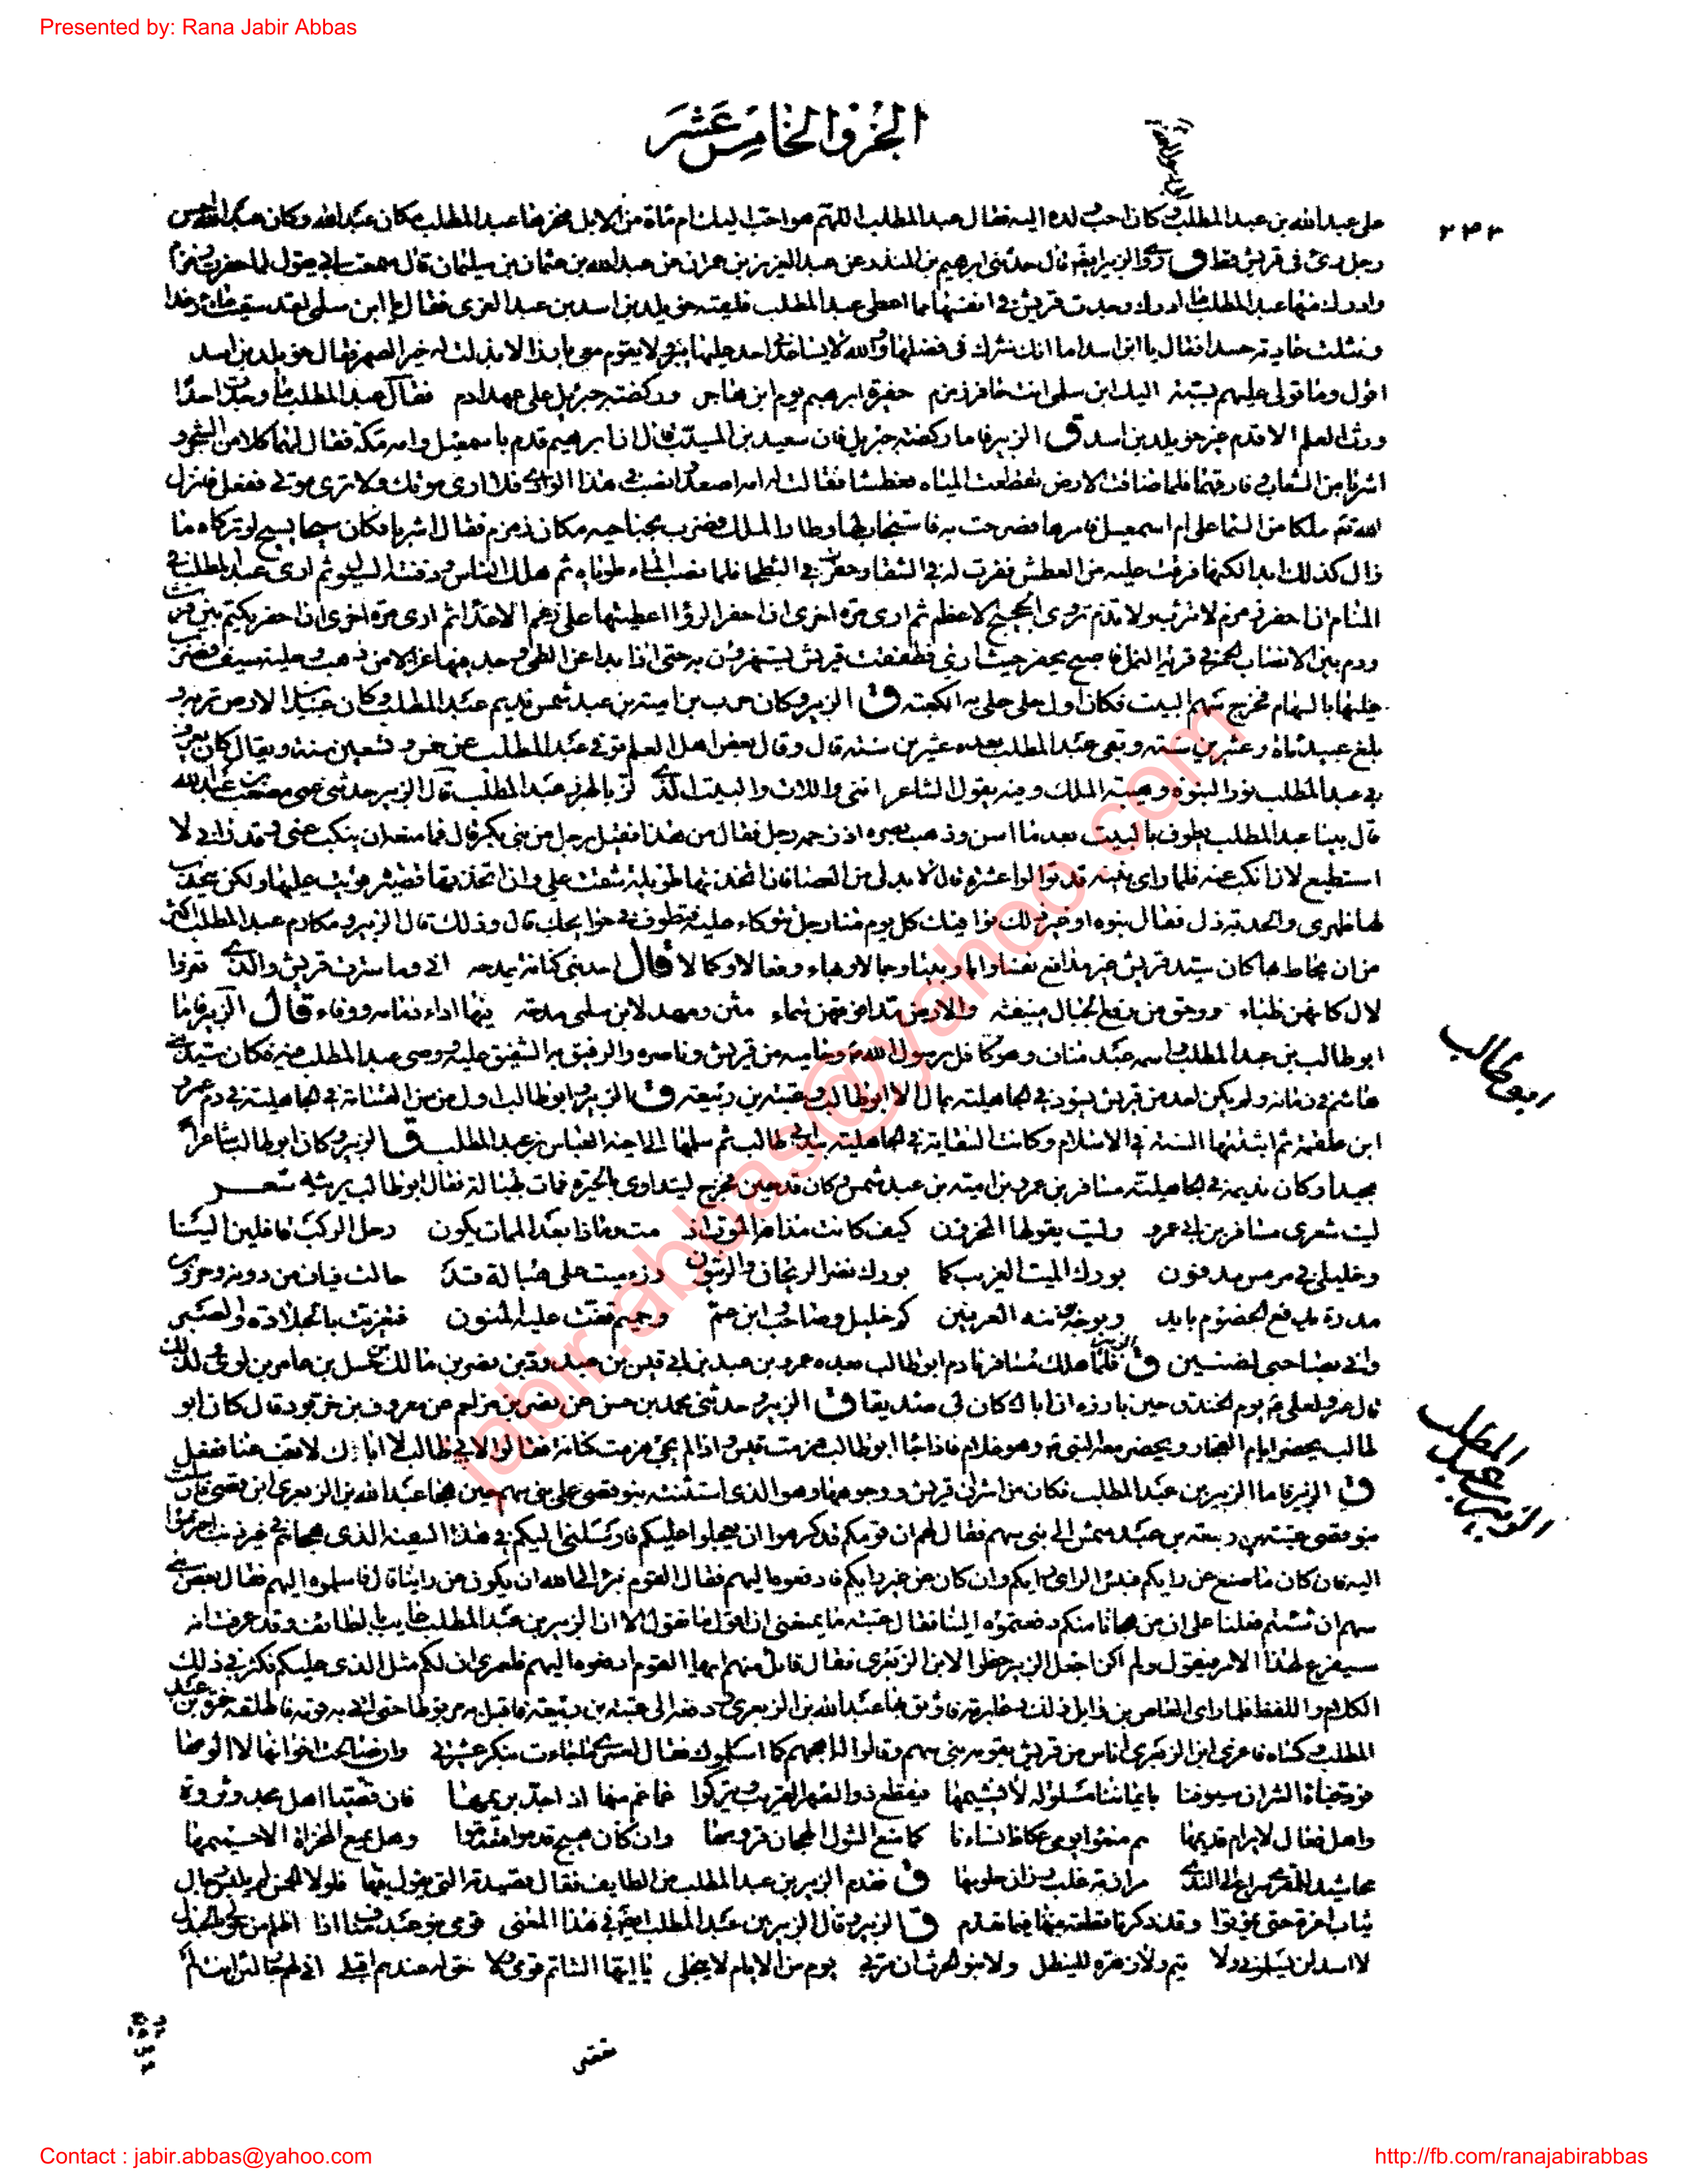 Presented by: Rana Jabir Abbas
الجزو الخامس عشر
على عبد الله بن عبد المطلب وكان احب ولده اليه فقال عبد المطلب اللهم هو احب اليك ام مائة من الابل فنحرها عبد المطلب مكان عبد الله وكان عبد الله احسن
رجل رئى فى قريش قط ق وروى الزبير ايضا قال حدثنى ابرهيم بن المنذر عن عبد العزيز بن عمران عن عبد الله بن عثمان بن سليمان قال سمعت ابى يقول لما حفرت زمزم
وادرك منها عبد المطلب ما ادرك وجدت قريش فى انفسها مما اعطى عبد المطلب فلقيه خويلد بن اسد بن عبد العزى فقال يا ابن سلمى لقد سقيت ماء رغدا
ونثلت عادية حسدا فقال يا ابن اسد اما انك تشرك فى فضلها والله لا يساعدنى احد عليها ببر ولا يقوم معى بارزا الا بذلت له خير الصهر فقال خويلد بن اسد
اقول وما قولى عليهم بسبة اليك ابن سلمى انت حافر زمزم حفيرة ابرهيم يوم ابن هاجر وركضة جبريل على عهد ادم فقال عبد المطلب ما وجدت احدا
ورث العلم الاقدم غير خويلد بن اسد ق الزبير فاما ركضة جبريل فان سعيد بن المسيب قال ان ابرهيم قدم باسمعيل وامه مكة فقال لهما كلا من الشجر و
اشربا من الشعاب وفارقهما فلما ضاقت الارض تقطعت المياه فعطشا فقالت له امه اصعد وانصب فى هذا الوادى فلا ارى موتك ولا ترى موتى ففعل فانزل
الله تعم ملكا من السماء على ام اسمعيل فامرها فصرحت به فاستجاب لها وطار الملك فضرب بجناحيه مكان زمزم فقال اشربا فكان سيحا يسيح لو تركاه ما
زال كذلك ابدا لكنها فرقت عليه من العطش فقرت له فى السقاء وحفرت فى البطحاء فلما نضب الماء طوياه ثم هلك الناس ودفنته السيول ثم ارى عبد المطلب فى
المنام ان احفر زمزم لا تنزف ولا تذم تروى الحجيج الاعظم ثم ارى مرة اخرى ان احفر الرؤا اعطيتها على رغم الاعداء ثم ارى مرة اخرى ان احفر تكتم بين فرث
ودم بين الانصاب الحمر فى قرية النمل فاصبح يحفر حيث ارى فطفقت قريش يستهزؤن به حتى اذا بدا عن الطى وجد فيها غزالا من ذهب وحلية سيف فضرب
عليها بالسهام فخرج سهم البيت فكان اول حلى حلى به الكعبة ق الزبير وكان حرب بن امية بن عبد شمس نديم عبد المطلب وكان عبيد بن الابرص تربه و
بلغ عبيد مائة وعشرين سنة وبقى عبد المطلب بعده عشرين سنة قال وقال بعض اهل العلم توفى عبد المطلب عن خمس وتسعين سنة ويقال كان يعرف
فى عبد المطلب نور النبوة وهيبة الملك وفيه يقول الشاعر اننى واللات والبيت الذى لز بالهبرز عبد المطلب قال الزبير حدثنى عمى مصعب بن عبد الله
قال بينا عبد المطلب يطوف بالبيت بعد ما اسن وذهب بصره اذ زحمه رجل فقال من هذا فقيل رجل من بنى بكر قال فما منعه ان ينكب عنى وقد رانى لا
استطيع لان انكب عنه فلما راى بنيه قد توالوا عشرة قال لا بد لى من العصا فان اتخذتها طويلة شقت على وان اتخذتها قصيرة قويت عليها ولكن ينحدب
لها ظهرى والحدبة ذل فقال بنوه او غير ذلك يوافيك كل يوم منا رجل تتوكاء عليه فتطوف فى حوائجك قال وذلك قال الزبير ومكارم عبد المطلب اكثر
من ان يحاط بها كان سيد قريش غير مدافع نفسا وابا وبيتا وجمالا وبهاء وفعالا وكمالا قال احد بنى كنانة يمدحه انى وما سترت قريش والذى تعزوا
لال كلهن ظباء ووحق من رفع الجبال منيفة والارض مدا فوقهن سماء مثن ومهد لابن سلمى مدحة فيها اداء ذمامه ووفاء قال الزبير فاما
ابو طالب بن عبد المطلب واسمه عبد مناف وهو كافل رسول الله وحاميه من قريش وناصره والرفيق به الشفيق عليه ووصى عبد المطلب فيه فكان سيد بنى
هاشم فى زمانه ولم يكن احد من قريش يسود فى الجاهلية بمال الا ابو طالب وعتبة بن ربيعة ق الزبير وابو طالب اول من سن القسامة فى الجاهلية فى دم عمرو
ابن علقمة ثم اثبتتها السنة فى الاسلام وكانت السقاية فى الجاهلية بيد ابى طالب ثم سلمها الى اخيه العباس بن عبد المطلب ق الزبير وكان ابو طالب شاعرا
مجيدا وكان نديمه فى الجاهلية مسافر بن عمرو بن امية بن عبد شمس وكان قد حبن فخرج ليتداوى بالحيرة فمات بهبالة فقال ابو طالب يرثيه شعر
ليت شعرى مسافر بن ابى عمرو وليت يقولها المحزون كيف كانت مذاقة الموت اذ مت وماذا بعد الممات يكون رحل الركب قافلين الينا
وخليلى فى مرمس مدفون بورك الميت الغريب كما بورك نضر الريحان والزيتون رزء ميت على هبالة قد حالت فياف من دونه وحزون
مدرة يدفع الخصوم بايد وبوجه يزينه العرنين كم خليل وصاحب وابن عم وحميم قفت عليه المنون فتعزيت بالجلادة والصبر
وانى بصاحبى لضنين ق الزبير فلما هلك مسافر نادم ابو طالب بعده عمرو بن عبد بن ابى قيس بن عبد ود بن نصر بن مالك بن حسل بن عامر بن لوى ولذلك
قال عمرو لعلى ع يوم الخندق حين بارزه ان اباك كان لى صديقا ق الزبير وحدثنى محمد بن حسن عن نصر بن مزاحم عن معروف بن خربوذ قال كان ابو
طالب يحضر ايام الفجار ويحضر معه النبى وهو غلام فاذا جاء ابو طالب هزمت قيس واذا لم يجئ هزمت كنانة فقالوا لابى طالب لا ابا لك لا تغب عنا ففعل
ق الزبير فاما الزبير بن عبد المطلب فكان من اشراف قريش ووجوهها وهو الذى استثنته بنو قصى على بنى سهم حين هجا عبد الله بن الزبعرى بنى قصى فارسلت
بنو قصى عتبة بن ربيعة بن عبد شمس الى بنى سهم فقال لهم ان قومكم قد كرهوا ان يعجلوا عليكم فارسلنى اليكم فى هذا السفيه الذى هجاهم فى غير ذنب اجترموا
اليه فان كان ما صنع عن رايكم فبئس الراى رايكم وان كان عن غير رايكم فادفعوه اليهم فقال القوم نبرأ الى الله ان يكون عن راينا قال فاسلموه اليهم فقال بعض بنى
سهم ان شئتم فعلنا على ان من هجانا منكم دفعتموه الينا فقال عتبة ما يمنعنى ان اقول ما تقول الا ان الزبير بن عبد المطلب غايب بالطائف وقد عرفت انه
سيفزع لهذا الامر فيقول ولم اكن اجعل الزبير خطرا لابن الزبعرى فقال قائل منهم ايها القوم ادفعوه اليهم فلعمرى ان لكم مثل الذى عليكم فكثر فى ذلك
الكلام واللغط فلما راى العاص بن وايل ذلك دعا برمة فاوثق بها عبد الله بن الزبعرى ودفعه الى عتبة بن ربيعة فاقبل به مربوطا حتى اتى به قومه فاطلقه حمزة بن عبد
المطلب وكساه فاغرى ابن الزبعرى اناس من قريش بقومه بنى سهم وقالوا له اهجهم كما اسلموك فقال لعمرى ما جاءت بنكر عشيرتى وان صالحت اخوانها لا الومها
فود جناة الشر ان سيوفنا بايماننا مسلولة لا نشيمها فيقطع ذو الصهر القريب ويتركوا غماغم منها اذ اجد يريمها فان قصيا اهل مجد وثروة
واهل فعال لا يرام قديمها هم منعوا يومى عكاظ نساءنا كما منع الشول الهجان قرومها وان كان هيج قدموا فتقدموا وهل يمنع المخزاة الا حميمها
محاشيد للمقرى سراع الى الندى مرازبة غلب رزان حلومها ق فقدم الزبير بن عبد المطلب من الطايف فقال قصيدته التى يقول فيها فلولا الحمس لم يلبس رجال
ثياب اعزة حتى يموتوا وقد ذكرنا قطعة منها فيما تقدم ق الزبير وقال الزبير بن عبد المطلب ايضا فى هذا المعنى قومى بنو عبد مناف اذا اظلم من حولى بالجندل
لا اسد لن يسلمونى ولا تيم ولا زهرة للنيطل ولا بنو الحرث ان مر بى يوم من الايام لا ينجلى يا ايها الشاتم قومى ولا حق له عندهم اقبل انى لهم جار لئن انت لم
٢٤٢
ابو طالب
الزبير بن عبد المطلب
تقصر
jabir.abbas@yahoo.com
Contact : jabir.abbas@yahoo.com
http://fb.com/ranajabirabbas